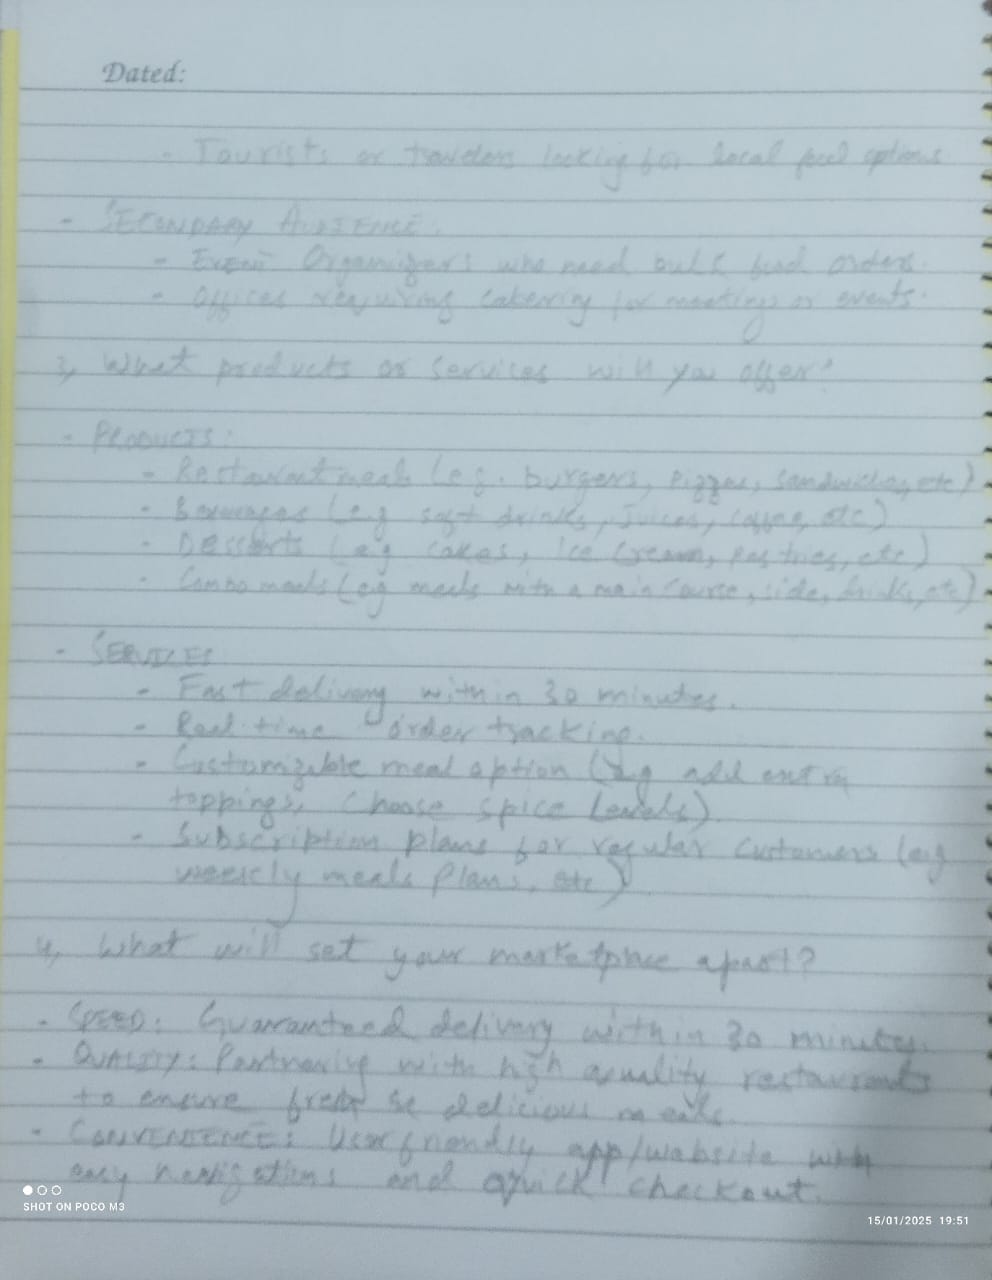 Dated:
- Tourists or travelers looking for local food options
- SECONDARY AUDIENCE:
- Event Organizers who need bulk food orders.
- Offices requiring catering for meetings or events.
3, What products or services will you offer?
- PRODUCTS:
- Restaurant meals (e.g. burgers, Pizzas, Sandwiches, etc)
- Beverages (e.g soft drinks, Juices, Coffee, etc)
- Desserts (e.g cakes, Ice Cream, Pastries, etc)
- Combo meals (e.g meals with a main course, side, drinks, etc)
- SERVICES
- Fast delivery within 30 minutes.
- Real-time order tracking.
- Customizable meal option (e.g add extra
toppings, Choose spice levels).
- Subscription plans for regular customers (e.g
weekly meals Plans, etc)
4, What will set your marketplace apart?
- SPEED: Guaranteed delivery within 30 minutes.
- QUALITY: Partnering with high quality restaurants
to ensure fresh delicious meals.
- CONVENIENCE: User friendly app/website with
easy navigations and quick checkout.
SHOT ON POCO M3
15/01/2025 19:51